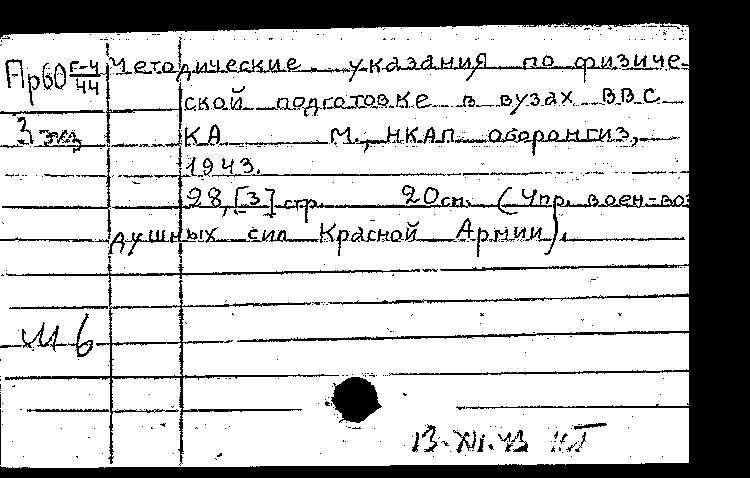 Пр60 Г-4/44 Методические указания по физиче-
ской подготовке в вузах ВВС
3 экз КА М., НКАП оборонгиз,
1943.
28, [3] стр. 20см. (Упр. воен-воз
душных сил Красной Армии).
13.XII.43